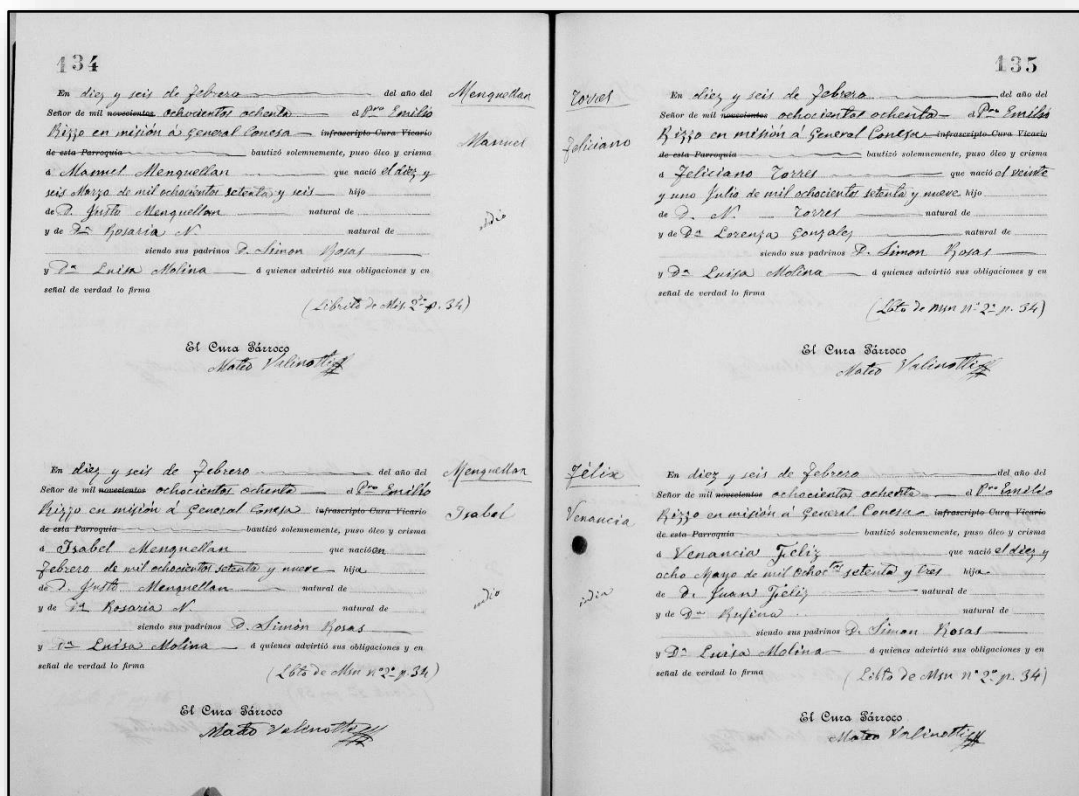 134
En diez y seis de febrero del año del
Señor de mil novecientos ochocientos ochenta el Pro Emilio
Rizzo en misión á General Conesa infrascripto Cura Vicario
de esta Parroquia bautizó solemnemente, puso óleo y crisma
á Manuel Menquellan que nació el diez y
seis Marzo de mil ochocientos setenta y seis hijo
de D. Justo Menquellan natural de
y de Da Rosaria N. natural de
siendo sus padrinos D. Simon Rosas
y Da Luisa Molina á quienes advirtió sus obligaciones y en
señal de verdad lo firma
(Librito de Mis. 2do p. 34)
El Cura Párroco
Mateo Valinotti
Menquellan
Manuel
indio
En diez y seis de febrero del año del
Señor de mil novecientos ochocientos ochenta el Pro Emilio
Rizzo en misión á General Conesa infrascripto Cura Vicario
de esta Parroquia bautizó solemnemente, puso óleo y crisma
á Isabel Menquellan que nació en
Febrero de mil ochocientos setenta y nueve hija
de D. Justo Menquellan natural de
y de Da Rosaria N. natural de
siendo sus padrinos D. Simón Rosas
y Da Luisa Molina á quienes advirtió sus obligaciones y en
señal de verdad lo firma
(Lbto de Msn no 2o p. 34)
El Cura Párroco
Mateo Valinotti
Menquellan
Isabel
indio
135
Torres
Feliciano
En diez y seis de febrero del año del
Señor de mil novecientos ochocientos ochenta el Pro Emilio
Rizzo en misión á General Conesa infrascripto Cura Vicario
de esta Parroquia bautizó solemnemente, puso óleo y crisma
á Feliciano Torres que nació el veinte
y uno Julio de mil ochocientos setenta y nueve hijo
de D. N. Torres natural de
y de Da Lorenza Gonzalez natural de
siendo sus padrinos D. Simon Rosas
y Da Luisa Molina á quienes advirtió sus obligaciones y en
señal de verdad lo firma
(Lbto de Msn no 2o p. 34)
El Cura Párroco
Mateo Valinotti
Félix
Venancia
india
En diez y seis de febrero del año del
Señor de mil novecientos ochocientos ochenta el Pro Emilio
Rizzo en misión á General Conesa infrascripto Cura Vicario
de esta Parroquia bautizó solemnemente, puso óleo y crisma
á Venancia Féliz que nació el diez y
ocho Mayo de mil ochoctos setenta y tres hija
de D. Juan Féliz natural de
y de Da Rufina natural de
siendo sus padrinos D. Simon Rosas
y Da Luisa Molina á quienes advirtió sus obligaciones y en
señal de verdad lo firma
(Lbto de Msn no 2o p. 34)
El Cura Párroco
Mateo Valinotti